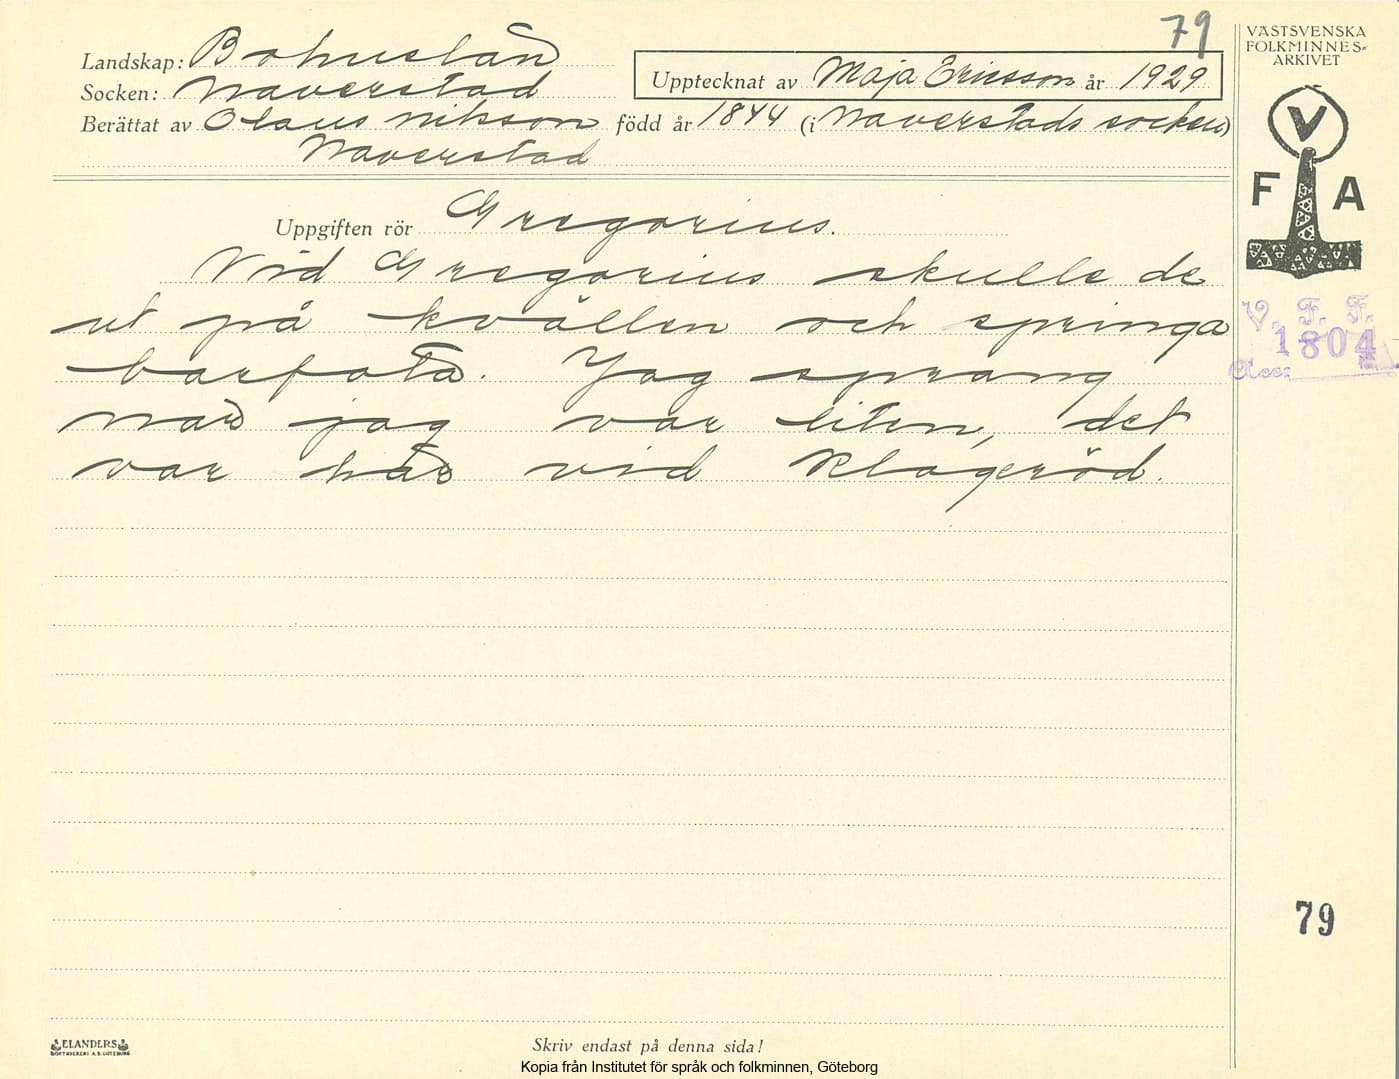 79
VÄSTSVENSKA
FOLKMINNES-
ARKIVET
Landskap: Bohuslän
Socken: Naverstad
Upptecknat av Maja Ericsson år 1929
Berättat av Olaus Nilsson född år 1844 (i Naverstads socken)
Naverstad
V
F A
Uppgiften rör Gregorius.
Vid Gregorius skulle de
ut på kvällen och springa
barfota. Jag sprang
när jag var liten, det
var här vid Klageröd.
V. F. F.
1804
Acc:
79
ELANDERS
BOKTRYCKERI A.B. GÖTEBORG
Skriv endast på denna sida!
Kopia från Institutet för språk och folkminnen, Göteborg